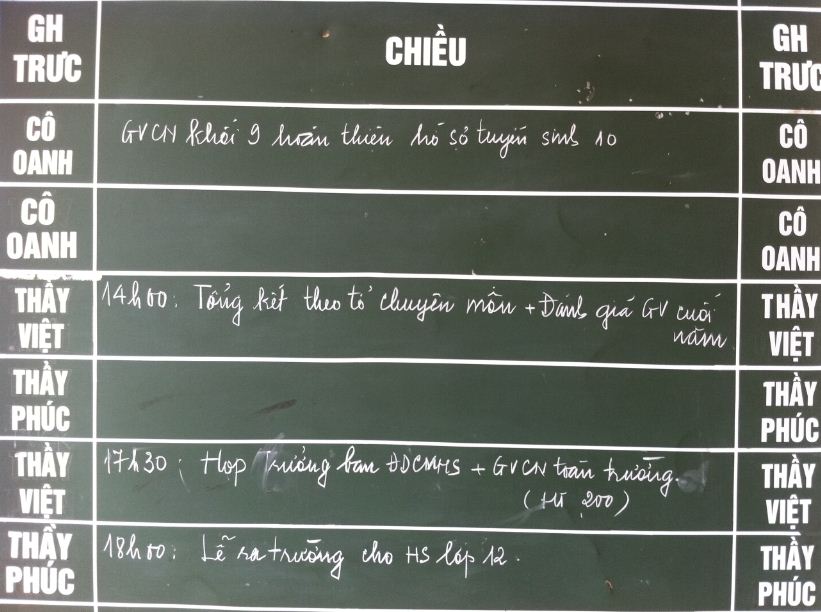 GH TRỰC CHIỀU GH TRỰC
CÔ OANH GVCN khối 9 hoàn thiện hồ sơ tuyển sinh 10 CÔ OANH
CÔ OANH CÔ OANH
THẦY VIỆT 14h00: Tổng kết theo tổ chuyên môn + Đánh giá GV cuối năm THẦY VIỆT
THẦY PHÚC THẦY PHÚC
THẦY VIỆT 17h30: Họp Trưởng ban ĐDCMHS + GVCN toàn trường. (HT 200) THẦY VIỆT
THẦY PHÚC 18h00: Lễ ra trường cho HS lớp 12. THẦY PHÚC